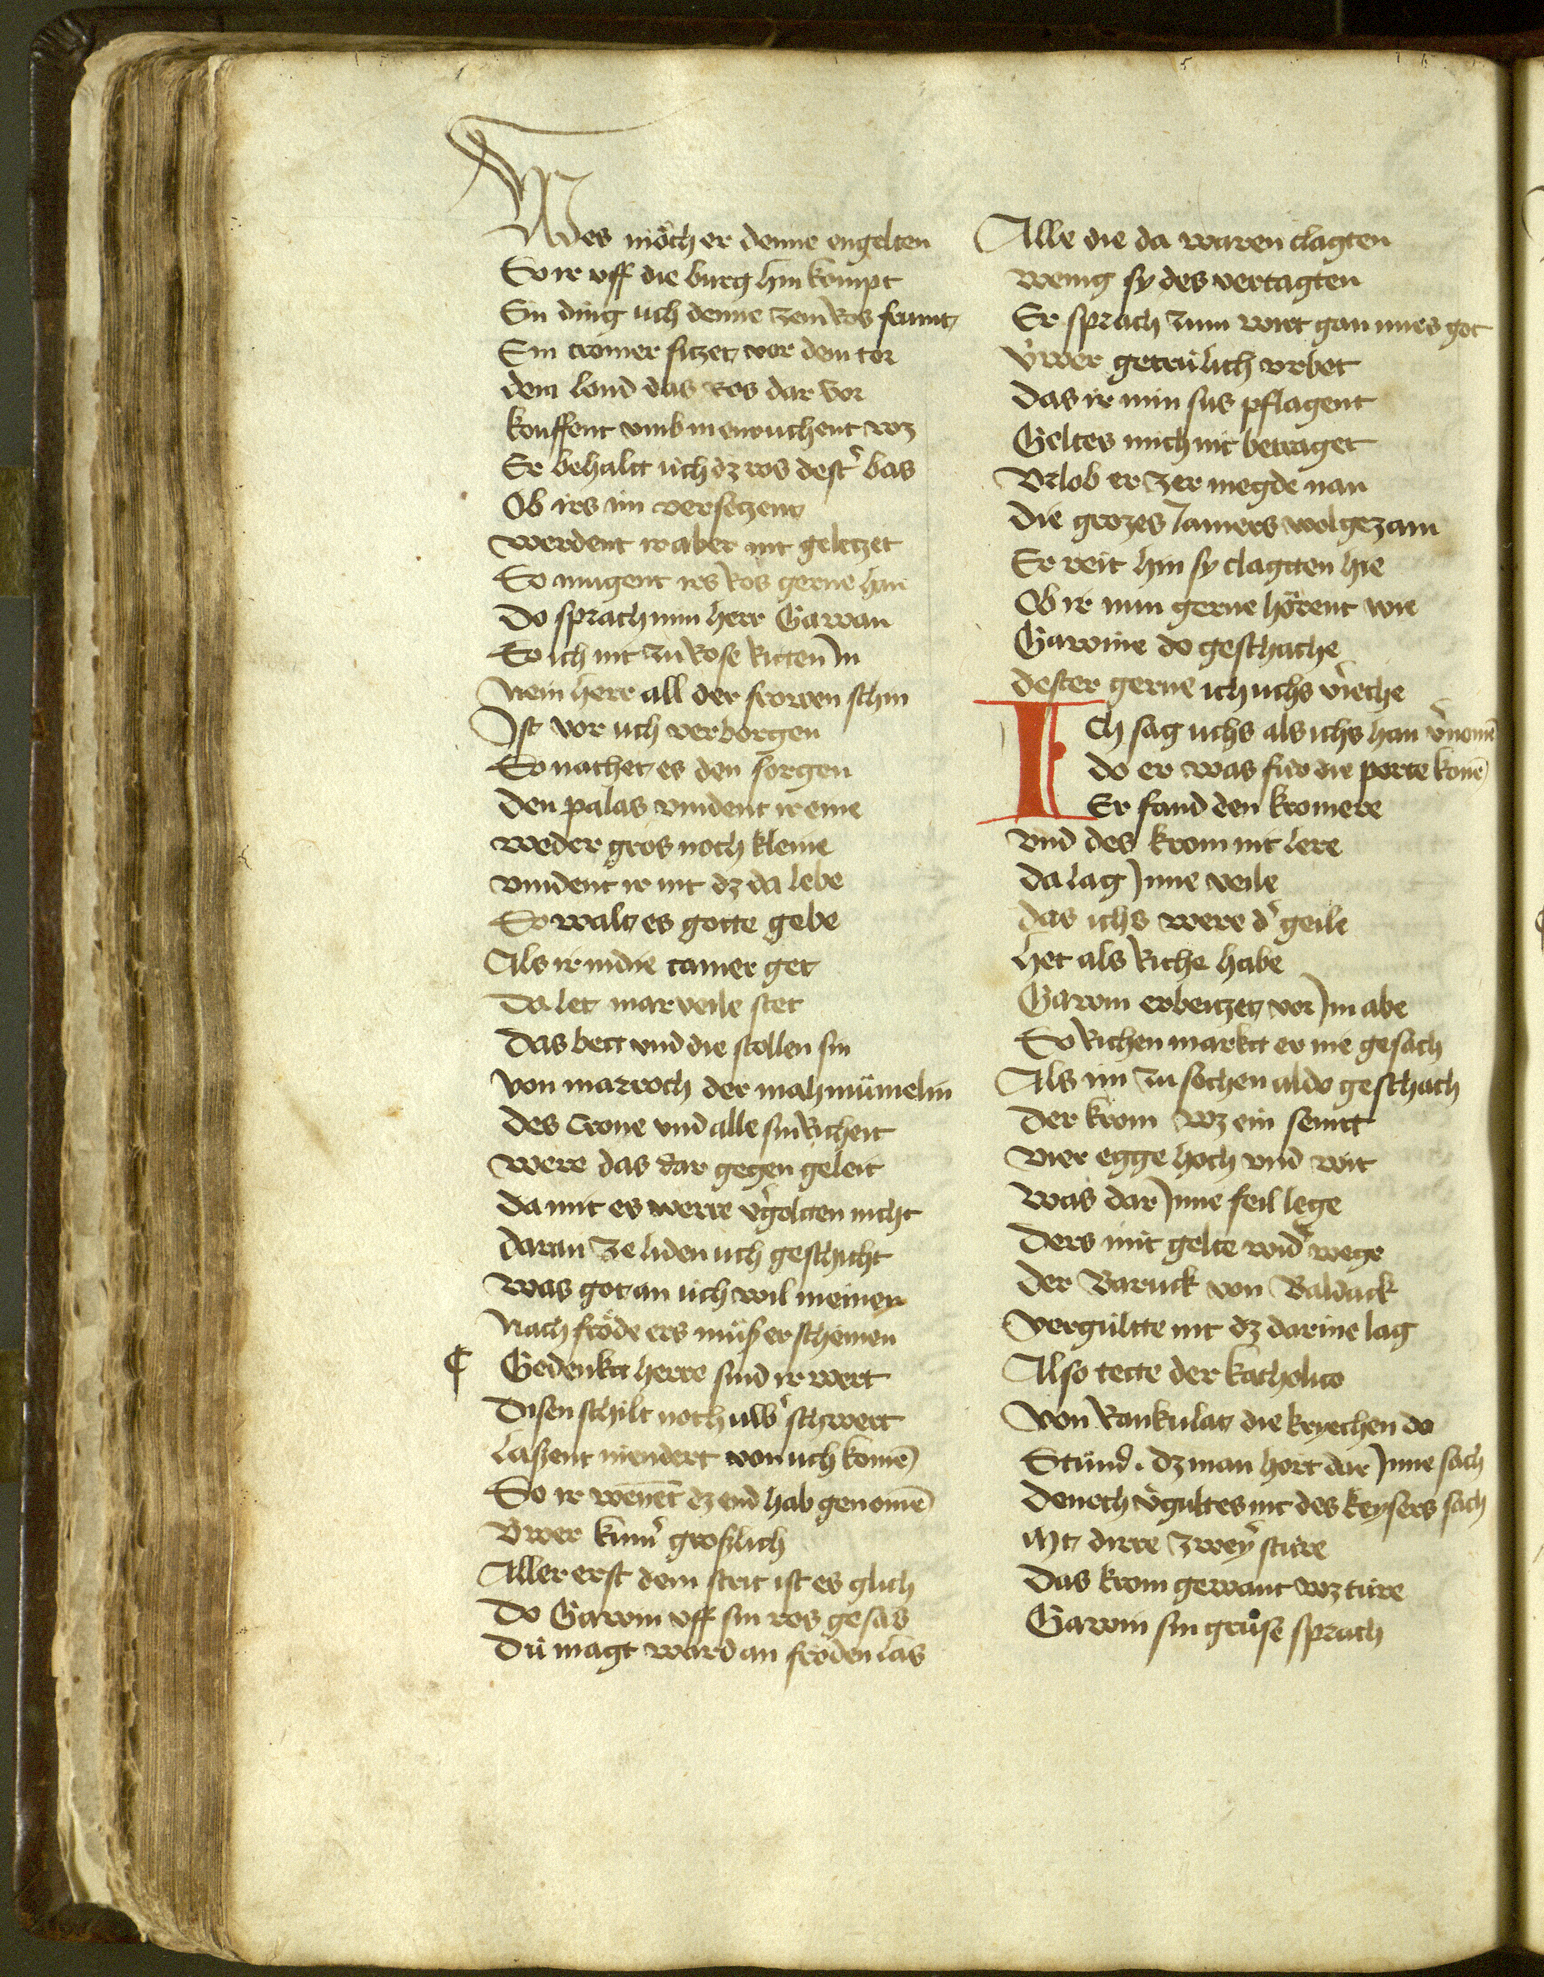 Wes möch er denne engelten
So ir vff die burg hin kompt
Ein ding uch denne zem ros frumt
Ein cromer sitzet vor dem tor
dem lond das ros dar vor
kouffent vmb in enruchent wz
Er behalt üch dz ros destˀ bas
Ob irs im versetzent
werdent ir aber nit geletzet
So mugent irs ros gerne han
Do sprach min herr Gawan
So ich nit zu rose ritten Jn
Nein herr all der frowen schin
Jst vor uch verborgen
So nachet es den sorgen
den palas vindent ir eine
weder gros noch kleine
vindent ir nit dz da lebe
So walt es gotte gebe
Als ir in die camer get
Da let marveile stet
Das bett vnd die stollen sin
von marroch der mahmümelin
des crone vnd alle sin richeit
were das dar gegen geleit
da mit es werre vˀgoltten nicht
daran ze liden uch geschicht
was got an üch wil meinen
Nach fröde ers müs erscheinen
¶ Gedenkt herre sind ir wert
Disen schilt noch uwˀ schwert
lassent niendert von uch komē
So ir wenēt dz end hab genomē
Vwer kumˀ groslich
Aller erst dem strit ist es glich
Do Gawin vff sin ros gesas
Dü magt ward an fröden las
Alle die da waren clagten
wenig sy des vertagten
Er sprach zum wirt gan mirs got
Vwer getrülich vrbet
das ir min sus pflagent
Geltes mich nit betraget
Vrlob er zer megde nan
die grozes Jamers wol gezam
Er reit hin sy clagtten hie
Ob ir nun gerne hörent wie
Gawine do geschache
dester gerne ich uchs vˀieche
Ich sag uchs als ichs han vˀnomē
do er was für die porte komē
Er fand den kromere
vnd des krom nit lere
da lag Jnne veile
das ichs were dˀ geile
het als riche habe
Gawin erbeitzet vor Jm abe
So richen markt er nie gesach
Als im zu sechen aldo geschach
der krom wz ein semit
vier egge hoch vnd wit
was dar Jnne feil lege
Ders mit gelte widˀ wege
der Baruck von Baldack
vergültte nit dz darine lag
Also tette der katholico
von Rankulat die kryechen do
Stünd . dz man hort dar Jnne sach
denoch vˀgultes nit des keysers sach
Mt dirre zweyˀ sture
das krom gewant wz türe
Gawin sin grůse sprach